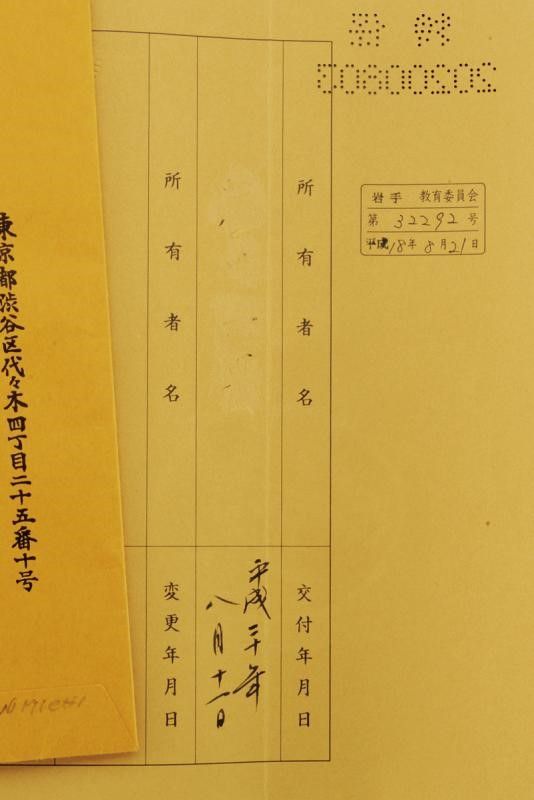 岩手 教育委員会
第 32292 号
平成18年8月21日
所有者名
交付年月日
平成二十年
八月十一日
所有者名
変更年月日
東京都渋谷区代々木四丁目二十五番十号